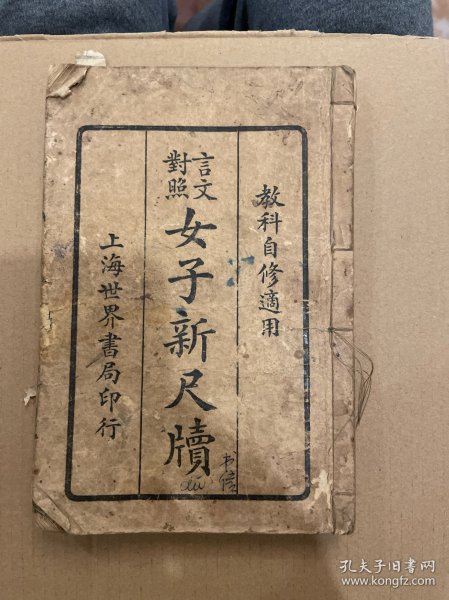 教科自修適用
言文
對照
女子新尺牘
书信
du
上海世界書局印行
孔夫子旧书网
www.kongfz.com